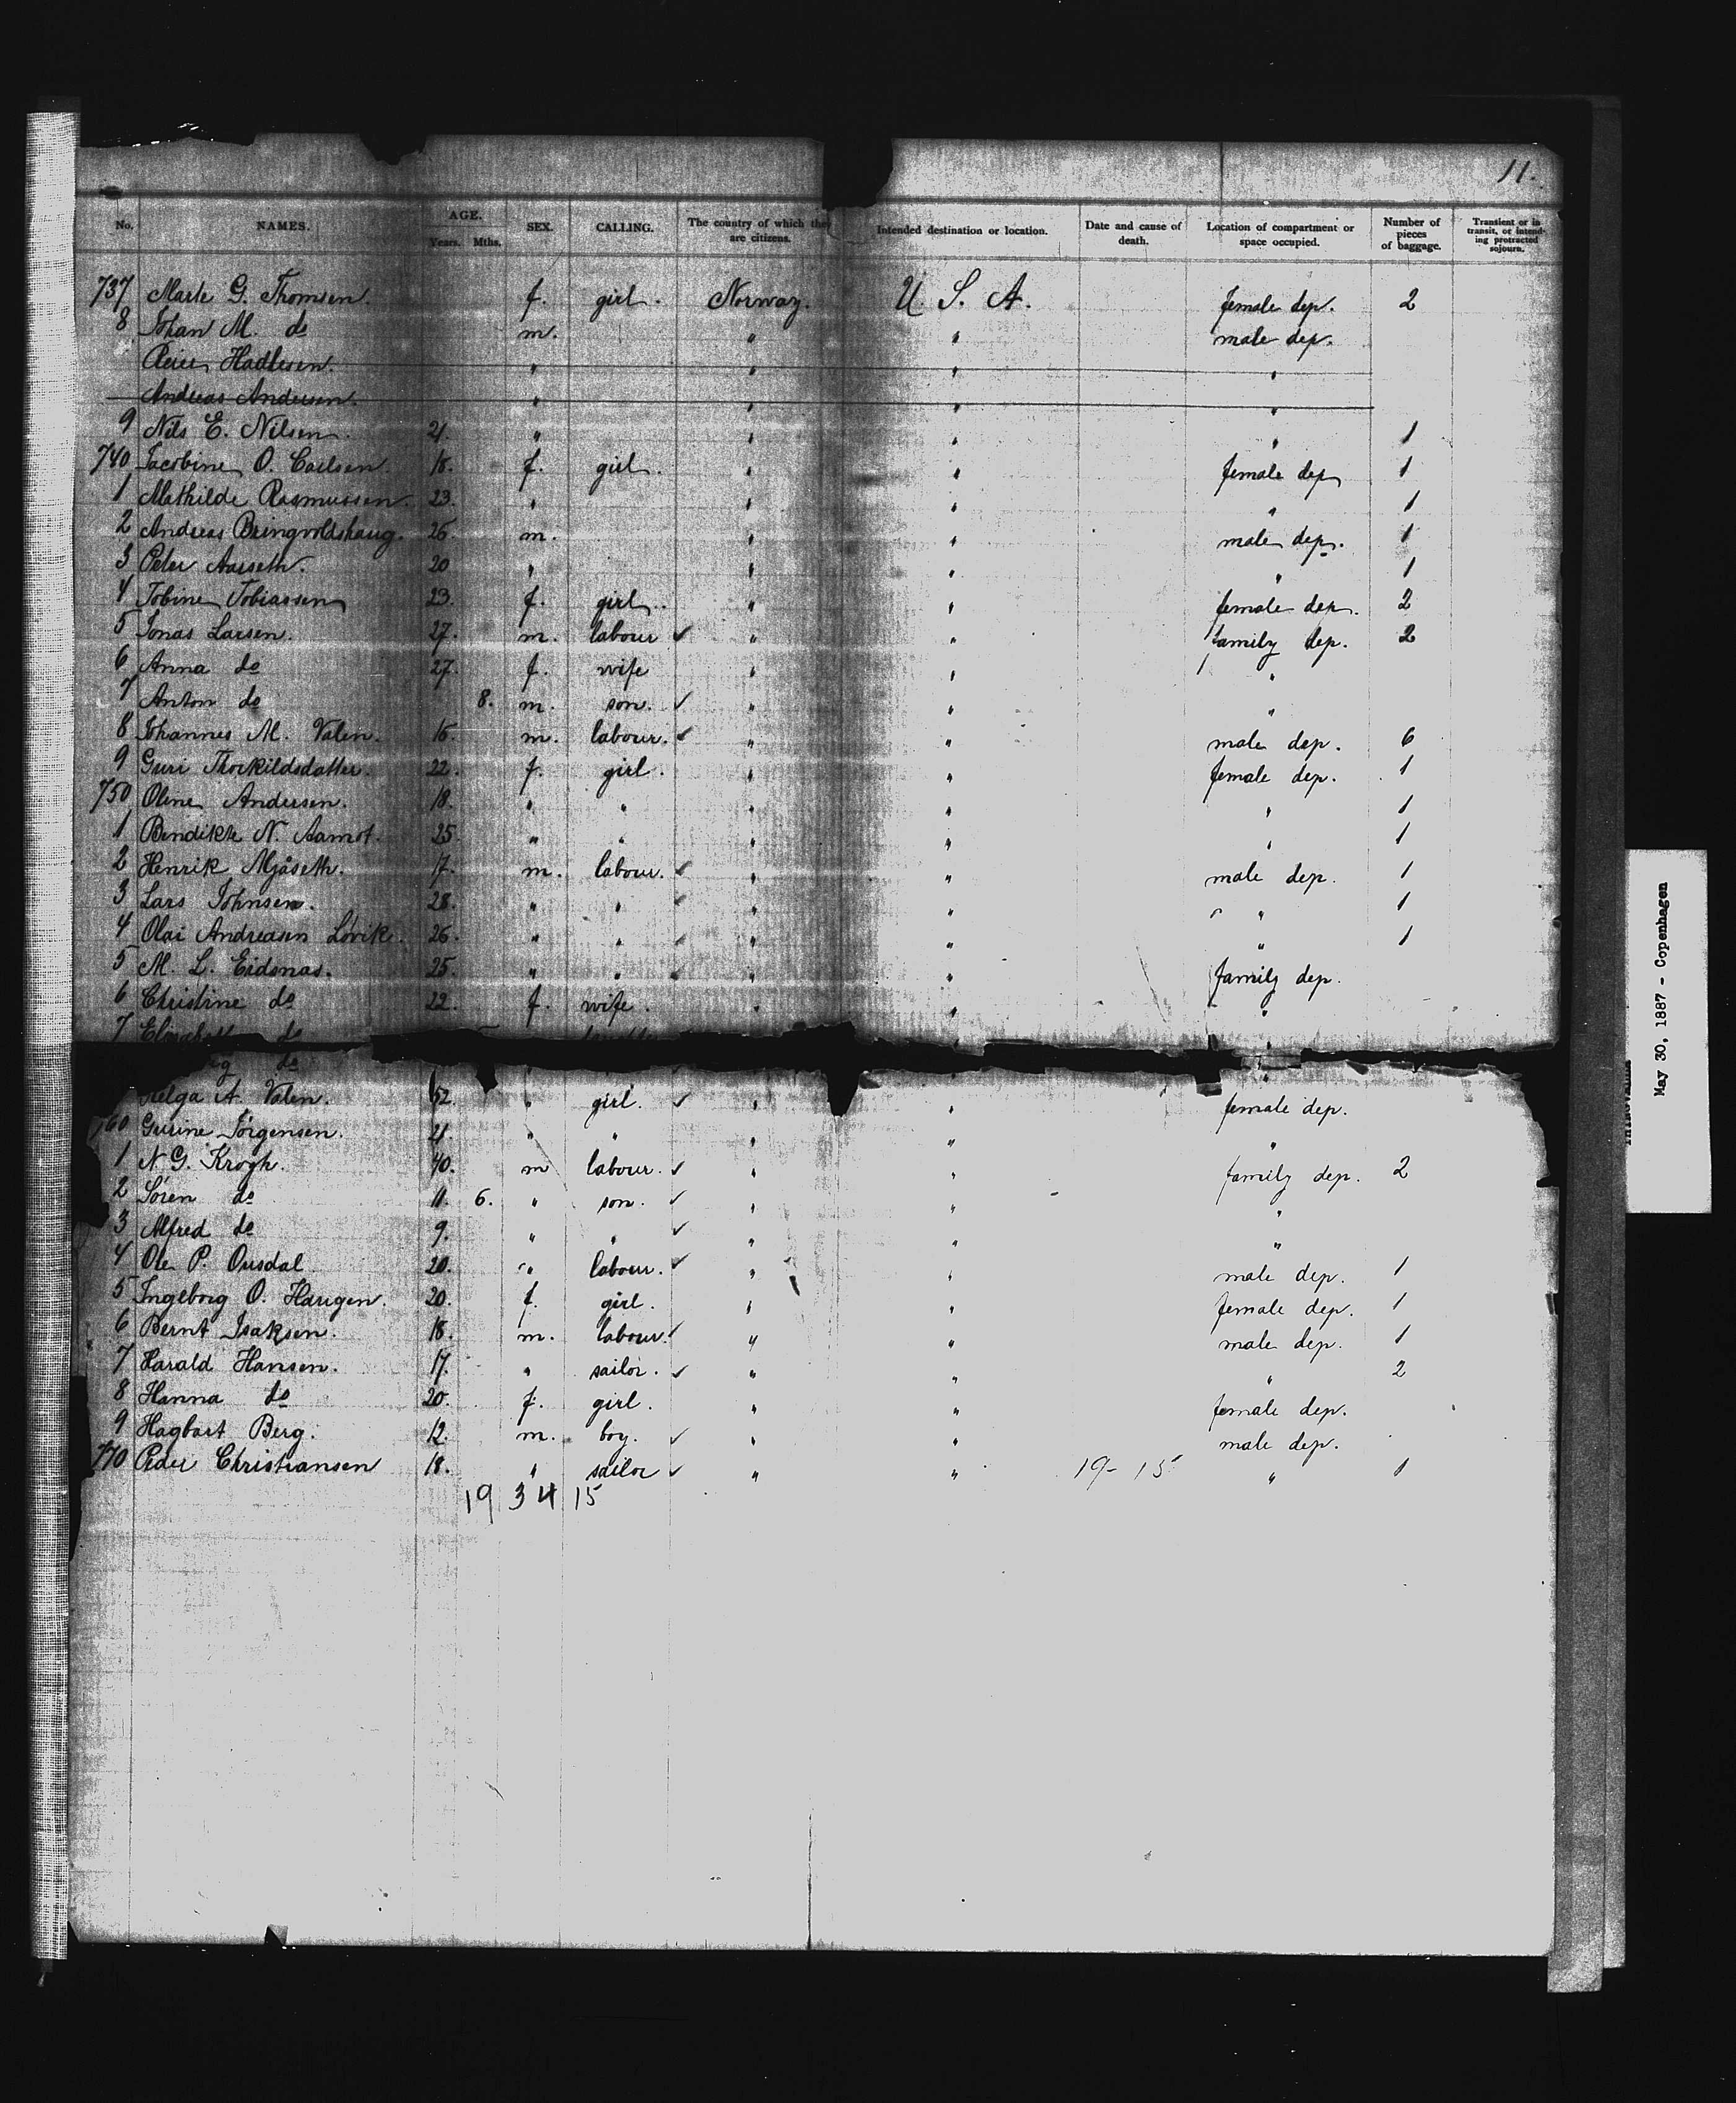 11.
No. NAMES. AGE. Years. Mths. SEX. CALLING. The country of which they are citizens. Intended destination or location. Date and cause of death. Location of compartment or space occupied. Number of pieces of baggage. Transient or in transit, or intending protracted sojourn.
737 Marte G. Thomsen. f. girl. Norway. U. S. A. female dep. 2
8 Johan M. do m. " " male dep.
Hadlesen. " " " "
Andreas Andersen. " " " "
9 Nils E. Nilsen. 21. " " " " 1
740 Jacobine O. Carlsen 18. f. girl. " " female dep 1
1 Mathilde Rasmussen. 23. " " " " 1
2 Andreas Bringvoldshaug. 26. m. " " male dep. 1
3 Peter Aarseth. 20 " " " " 1
4 Tobine Tobiassen 23. f. girl. " " female dep. 2
5 Jonas Larsen. 27. m. labour ✓ " " family dep. 2
6 Anna do 27. f. wife " " "
7 Anton do 8. m. son. ✓ " " "
8 Johannes M. Valen. 16. m. labour. ✓ " " male dep. 6
9 Guri Thorkildsdatter. 22. f. girl. " " female dep. 1
750 Oline Andersen. 18. " " " " " 1
1 Bendikte N. Aamot. 25. " " " " " 1
2 Henrik Mjåseth. 17. m. labour. ✓ " " male dep. 1
3 Lars Johnsen. 28. " " ✓ " " " 1
4 Olai Andreasen Lövik. 26. " " ✓ " " " 1
5 M. L. Eidsnas. 25. " " ✓ " " family dep.
6 Christine do 22. f. wife. " " "
7 do
do
Helga A. Valen. 52. " girl. ✓ " " female dep.
60 Gurine Jörgensen. 21. " " " " "
1 N. G. Krogh. 40. m labour. ✓ " " family dep. 2
2 Sören do 11. 6. " son. ✓ " " "
3 Alfred do 9. " " ✓ " " "
4 Ole P. Ousdal 20. " labour. ✓ " " male dep. 1
5 Ingeborg O. Haugen. 20. f. girl. " " female dep. 1
6 Bernt Isaksen. 18. m. labour. ✓ " " male dep. 1
7 Harald Hansen. 17. " sailor. ✓ " " " 2
8 Hanna do 20. f. girl. " " female dep.
9 Hagbart Berg. 12. m. boy. ✓ " " male dep.
770 Peder Christiansen 18. " sailor ✓ " " 19-15 " 1
19 34 15
May 30, 1887 - Copenhagen